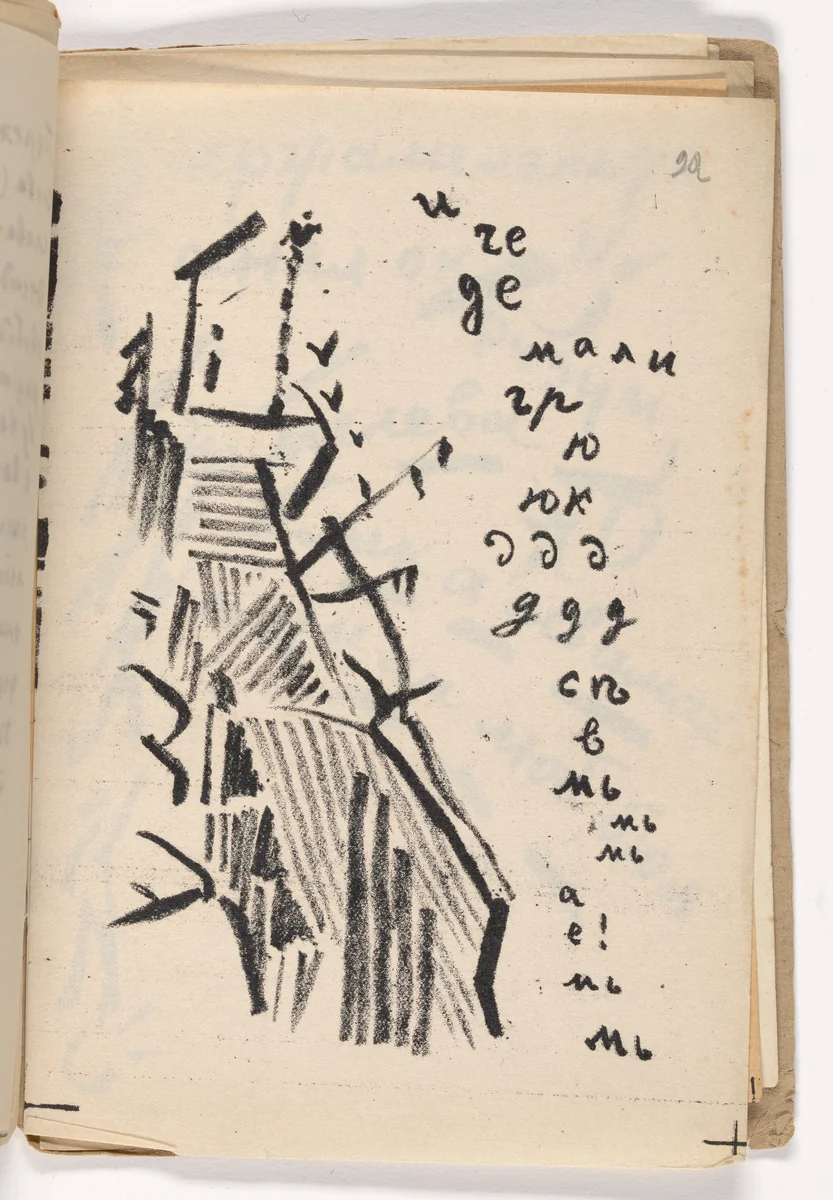 22
и
че
де
мали
гр
ю
юк
д д д
д д д
сѣ
в
мь
мь
мь
а
е!
мь
мь